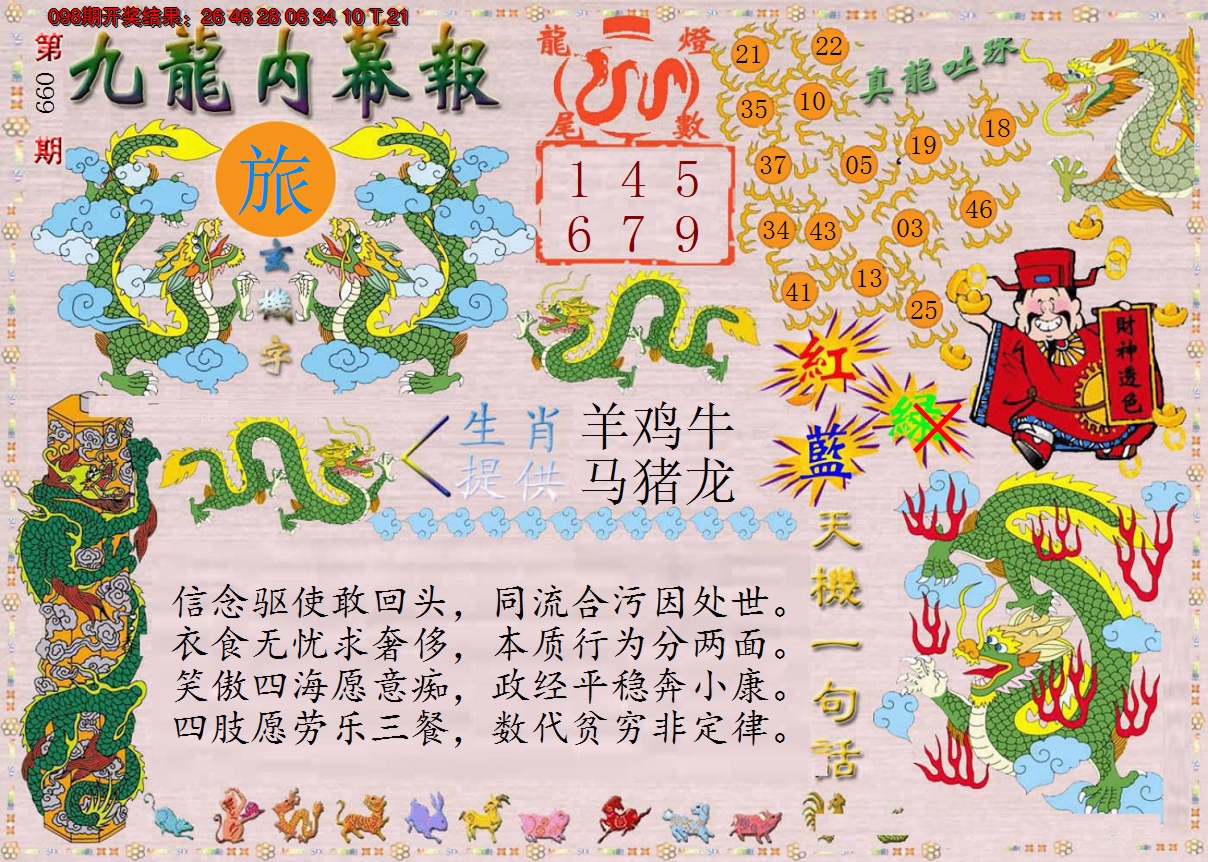 098期开奖结果：26 46 28 06 34 10 T 21
第
099
期
九龍内幕報
旅
玄
機
字
龍 燈
尾 數
1 4 5
6 7 9
真龍吐珠
21 22
35 10
19 18
37 05
46
34 43 03
13
41 25
紅
綠
藍
財神透色
生肖 羊鸡牛
提供 马猪龙
天機一句话
信念驱使敢回头，同流合污因处世。
衣食无忧求奢侈，本质行为分两面。
笑傲四海愿意痴，政经平稳奔小康。
四肢愿劳乐三餐，数代贫穷非定律。